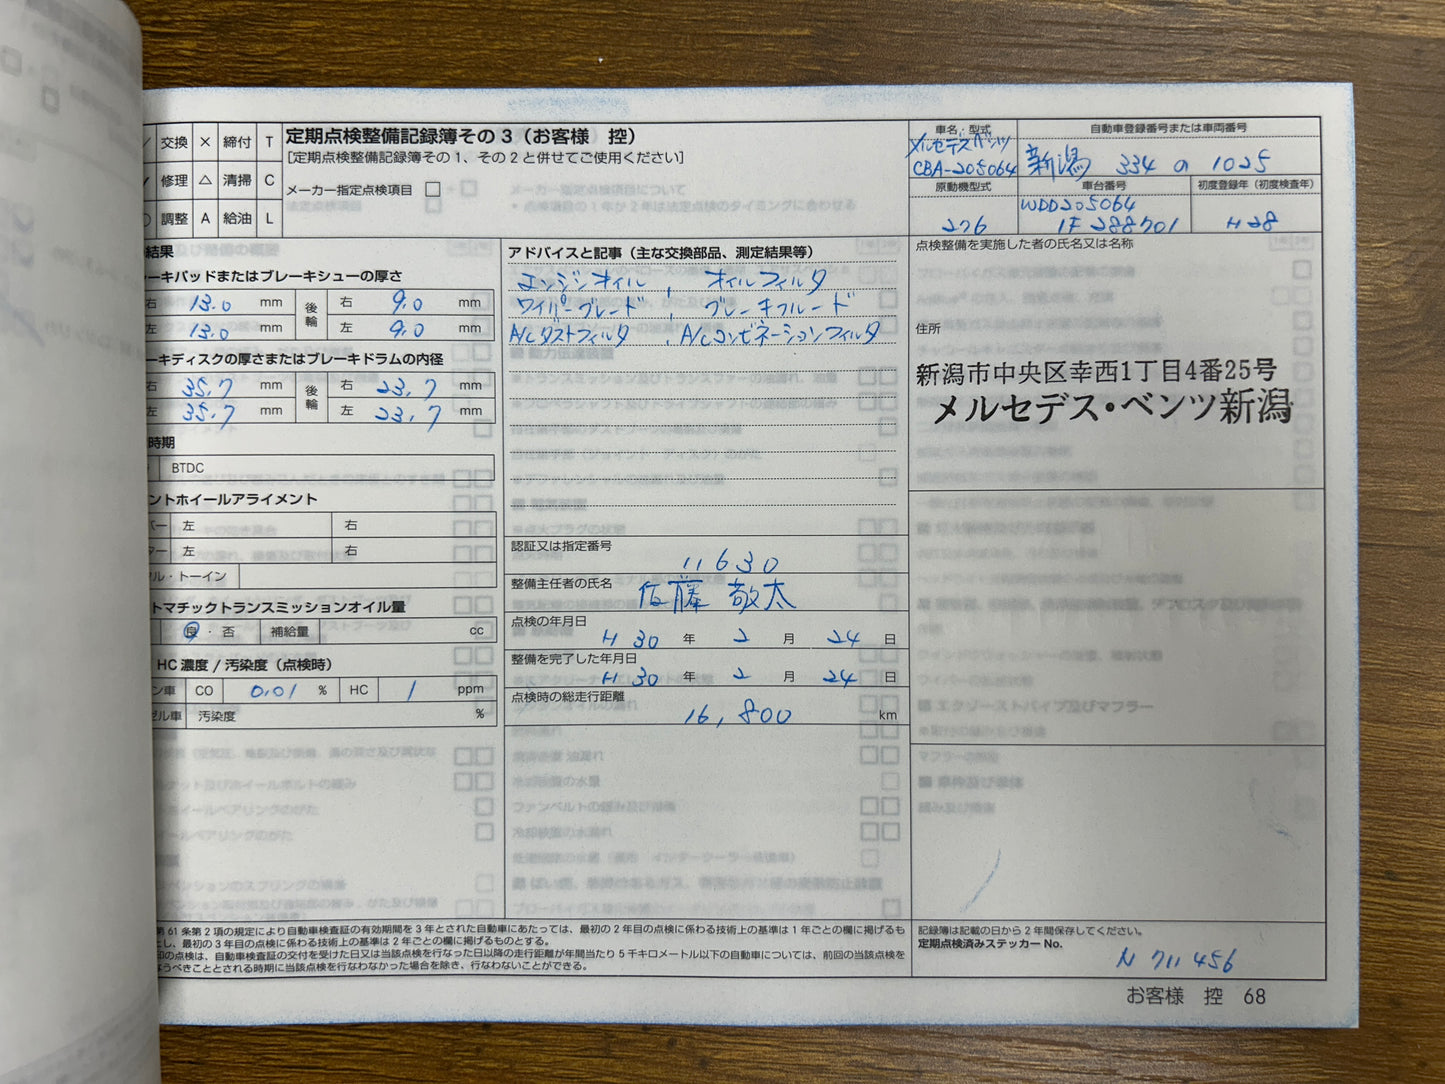 交換 × 締付 T
修理 △ 清掃 C
調整 A 給油 L
定期点検整備記録簿その3（お客様 控）
[定期点検整備記録簿その1、その2と併せてご使用ください]
メーカー指定点検項目 □
車名・型式
メルセデスベンツ
CBA-205064
自動車登録番号または車両番号
新潟 334 の 1025
原動機型式
276
車台番号
WDD205064
1F288701
初度登録年（初度検査年）
H28
結果
ーキパッドまたはブレーキシューの厚さ
右 13.0 mm 後輪 右 9.0 mm
左 13.0 mm 左 9.0 mm
ーキディスクの厚さまたはブレーキドラムの内径
右 35.7 mm 後輪 右 23.7 mm
左 35.7 mm 左 23.7 mm
時期
BTDC
ントホイールアライメント
バー 左 右
ター 左 右
タル・トーイン
トマチックトランスミッションオイル量
良・否 補給量 cc
HC 濃度 / 汚染度（点検時）
ン車 CO 0.01 % HC 1 ppm
ゼル車 汚染度 %
アドバイスと記事（主な交換部品、測定結果等）
エンジンオイル , オイルフィルタ
ワイパーブレード , ブレーキフルード
A/Cダストフィルタ , A/Cコンビネーションフィルタ
認証又は指定番号
11630
整備主任者の氏名
佐藤 敬太
点検の年月日
H 30 年 2 月 24 日
整備を完了した年月日
H 30 年 2 月 24 日
点検時の総走行距離
16,800 km
点検整備を実施した者の氏名又は名称
住所
新潟市中央区幸西1丁目4番25号
メルセデス・ベンツ新潟
第 61 条第 2 項の規定により自動車検査証の有効期間を 3 年とされた自動車にあたっては、最初の 2 年目の点検に係わる技術上の基準は 1 年ごとの欄に掲げるも
とし、最初の 3 年目の点検に係わる技術上の基準は 2 年ごとの欄に掲げるものとする。
印の点検は、自動車検査証の交付を受けた日又は当該点検を行なった日以降の走行距離が年間当たり 5 千キロメートル以下の自動車については、前回の当該点検を
なうべきこととされる時期に当該点検を行なわなかった場合を除き、行なわないことができる。
記録簿は記載の日から 2 年間保存してください。
定期点検済みステッカー No.
N 711456
お客様 控 68